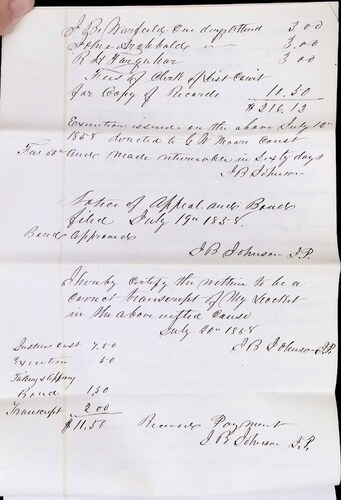 J. B. Warfield One days attend 3 00
John Archbolds " 3.00
R H Farquhar 3 00
Fees of Clerk of Dist Court
for Copy of Records 10.50
$216.13
Execution issued on the above July 10th
1858 directed to G W Moore Const
Fee 50c and made returnable in Sixty days
J B Johnson
Notice of Appeal and Bond
filed July 19th 1858.
Bond Approved
J B Johnson J.P.
I hereby certify the within to be a
correct transcript of My Docket
in the above entitled Cause
July 20th 1858
J B Johnson J.P.
Justices cost 7.50
Execution 50
Taking & Approving
Bond 1.50
Transcript 2 00
$11.50
Received Payment
J B Johnson J.P.